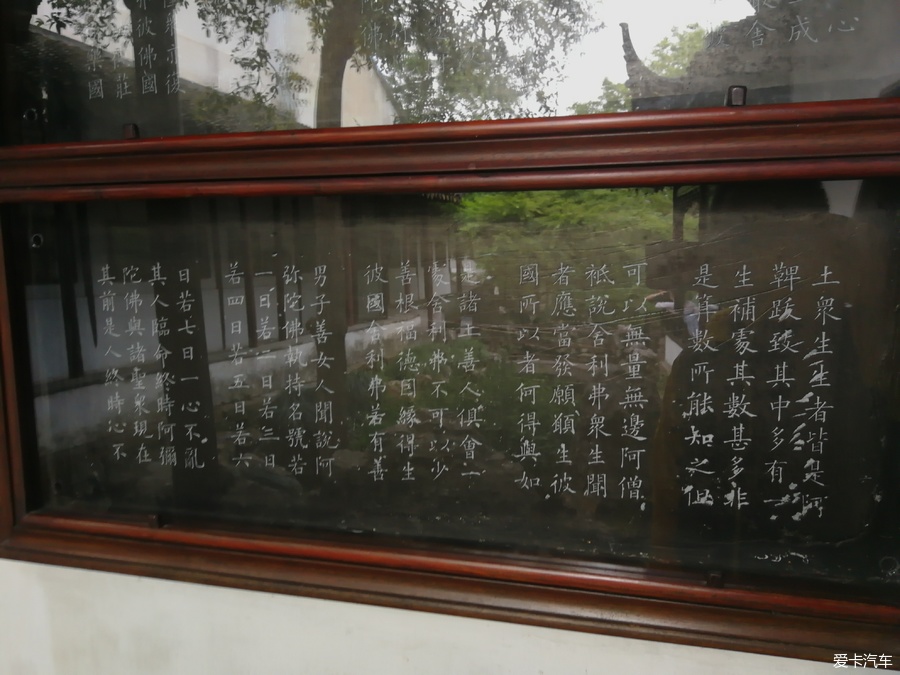 心
成
舍
彼佛國
莊
國
土衆生生者皆是阿
鞞跋致其中多有一
生補處其數甚多非
是筭數所能知之但
可以無量無邊阿僧
祇說舍利弗衆生聞
者應當發願願生彼
國所以者何得與如
是諸上善人俱會一
處舍利弗不可以少
善根福德因緣得生
彼國舍利弗若有善
男子善女人聞說阿
弥陀佛執持名號若
一日若二日若三日
若四日若五日若六
日若七日一心不亂
其人臨命終時阿彌
陀佛與諸聖衆現在
其前是人終時心不
爱卡汽车